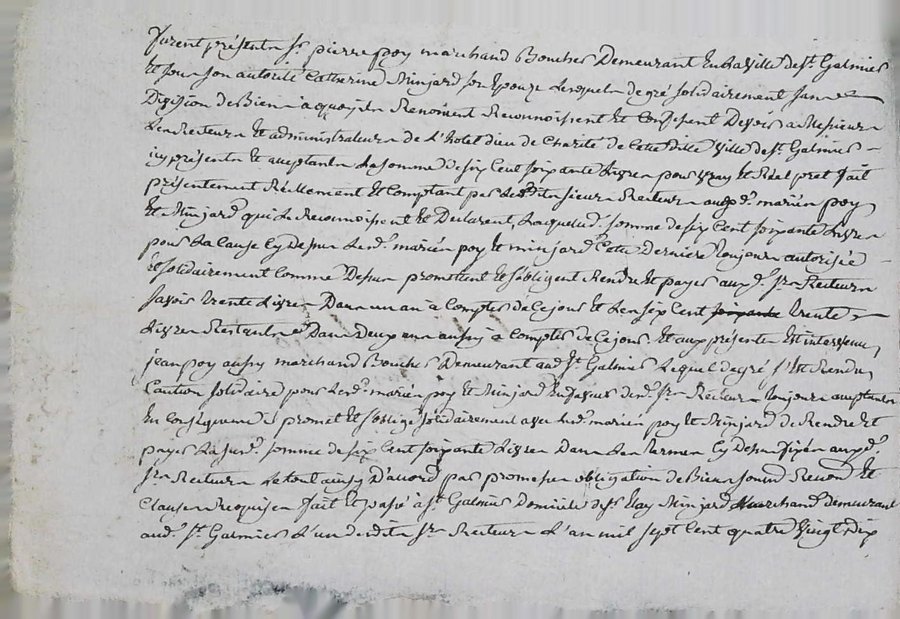 furent présents sr. pierre poy marchand Boucher Demeurant En la Ville de st. Galmier
Et sous son autorité Catherine Minjard son Epouze Lesquels de gré solidairement sans
Division de Biens à quoy ils Renoncent Reconnoissent Et Confessent Devoir a Messieurs
Les Recteurs Et administrateurs de L'hotel dieu de Charité de Cette ditte Ville de st. Galmier
icy présents Et acceptants La somme de six Cent soixante Livres pour Vray Et Réel pret fait
présentement Réellement Et Comptant par Lesdits sieurs Recteurs auxd. mariés poy
Et Minjard qui Le Reconnoissent Et Declarent, Laquelled. somme de six Cent soixante Livres
pour La Cause Cy Dessus Lesd. mariés poy Et minjard Cette Derniere toujours autorisée
Et solidairement Comme Dessus promettent Et s'obligent Rendre Et payer auxd. srs. Recteurs
savoir trente Livres Dans un an à Compter de Ce jour Et Les six Cent soixante trente
Livres Restantes Dans Deux ans aussy à Compter de Ce jour. Et aux présentes Est intervenu
jean poy aussy marchand Boucher Demeurant aud. st. Galmier Lequel de gré s'Est Rendu
Caution solidaire pour Lesd. mariés poy Et Minjard En faveur desd. srs. Recteurs toujours acceptants
En Conséquence il promet Et s'oblige solidairement avec Lesd. mariés poy Et Minjard de Rendre Et
payer La susd. somme de six Cent soixante Livres Dans Les termes Cy Dessus fixés auxd.
srs. Recteurs Le tout ainsy D'accord par promesse obligation de Biens soumd. Renond. Et
Clauses Requises fait Et passé à st. Galmier Domicile de sr. Minjard Marchand demeurant
aud. st. Galmier L'un desdits srs. Recteurs L'an mil sept Cent quatre Vingt Dix